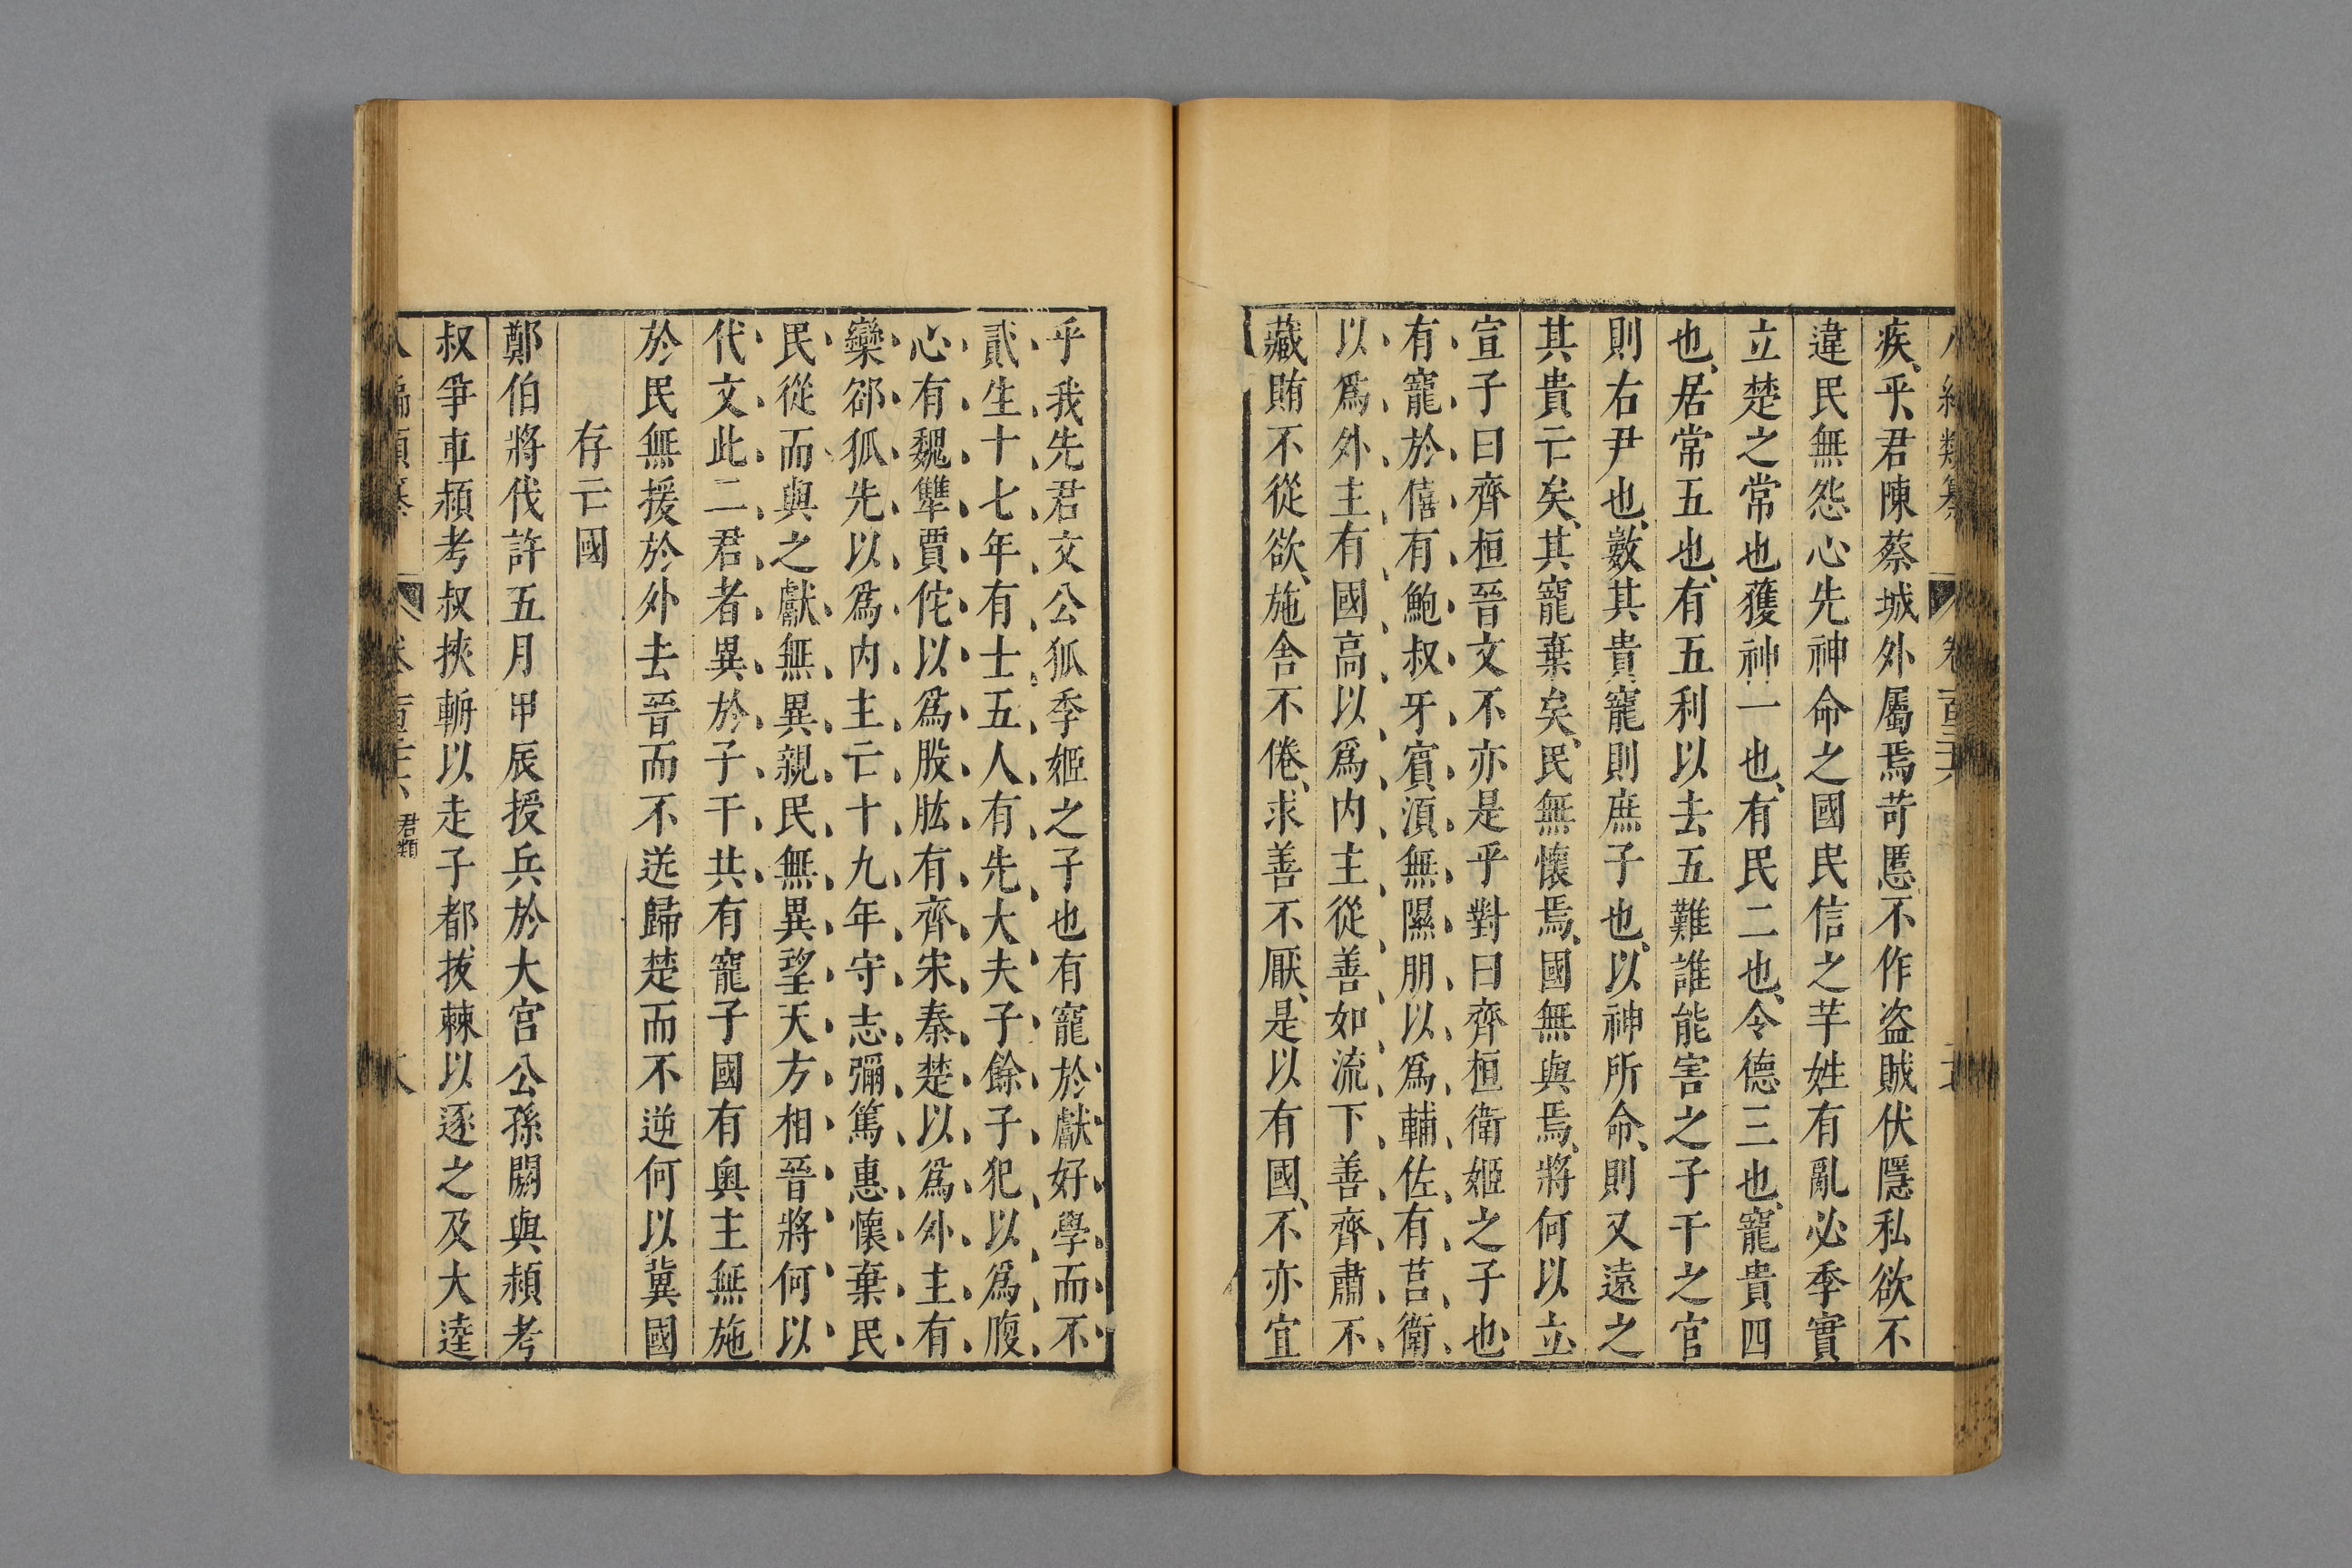 疾乎君陳蔡城外屬焉苛慝不作盗賊伏隱私欲不
違民無怨心先神命之國民信之芉姓有亂必季實
立楚之常也獲神一也有民二也令德三也寵貴四
也居常五也有五利以去五難誰能害之子干之官
則右尹也數其貴寵則庶子也以神所命則又遠之
其貴亡矣其寵棄矣民無懷焉國無與焉將何以立
宣子曰齊桓晉文不亦是乎對曰齊桓衛姬之子也
有寵於僖有鮑叔牙賓湏無隰朋以爲輔佐有莒衛
以爲外主有國高以爲内主從善如流下善齊肅不
藏賄不從欲施舍不倦求善不厭是以有國不亦宜
乎我先君文公狐季姬之子也有寵於獻好學而不
貳生十七年有士五人有先大夫子餘子犯以爲腹
心有魏犫賈佗以爲股肱有齊宋秦楚以爲外主有
欒郤狐先以爲内主亡十九年守志彌篤惠懷棄民
民從而與之獻無異親民無異望天方相晉將何以
代文此二君者異於子干共有寵子國有奥主無施
於民無援於外去晉而不送歸楚而不逆何以冀國
存亡國
鄭伯將伐許五月甲辰授兵於大宫公孫閼與潁考
叔爭車潁考叔挾輈以走子都拔棘以逐之及大逵
君類